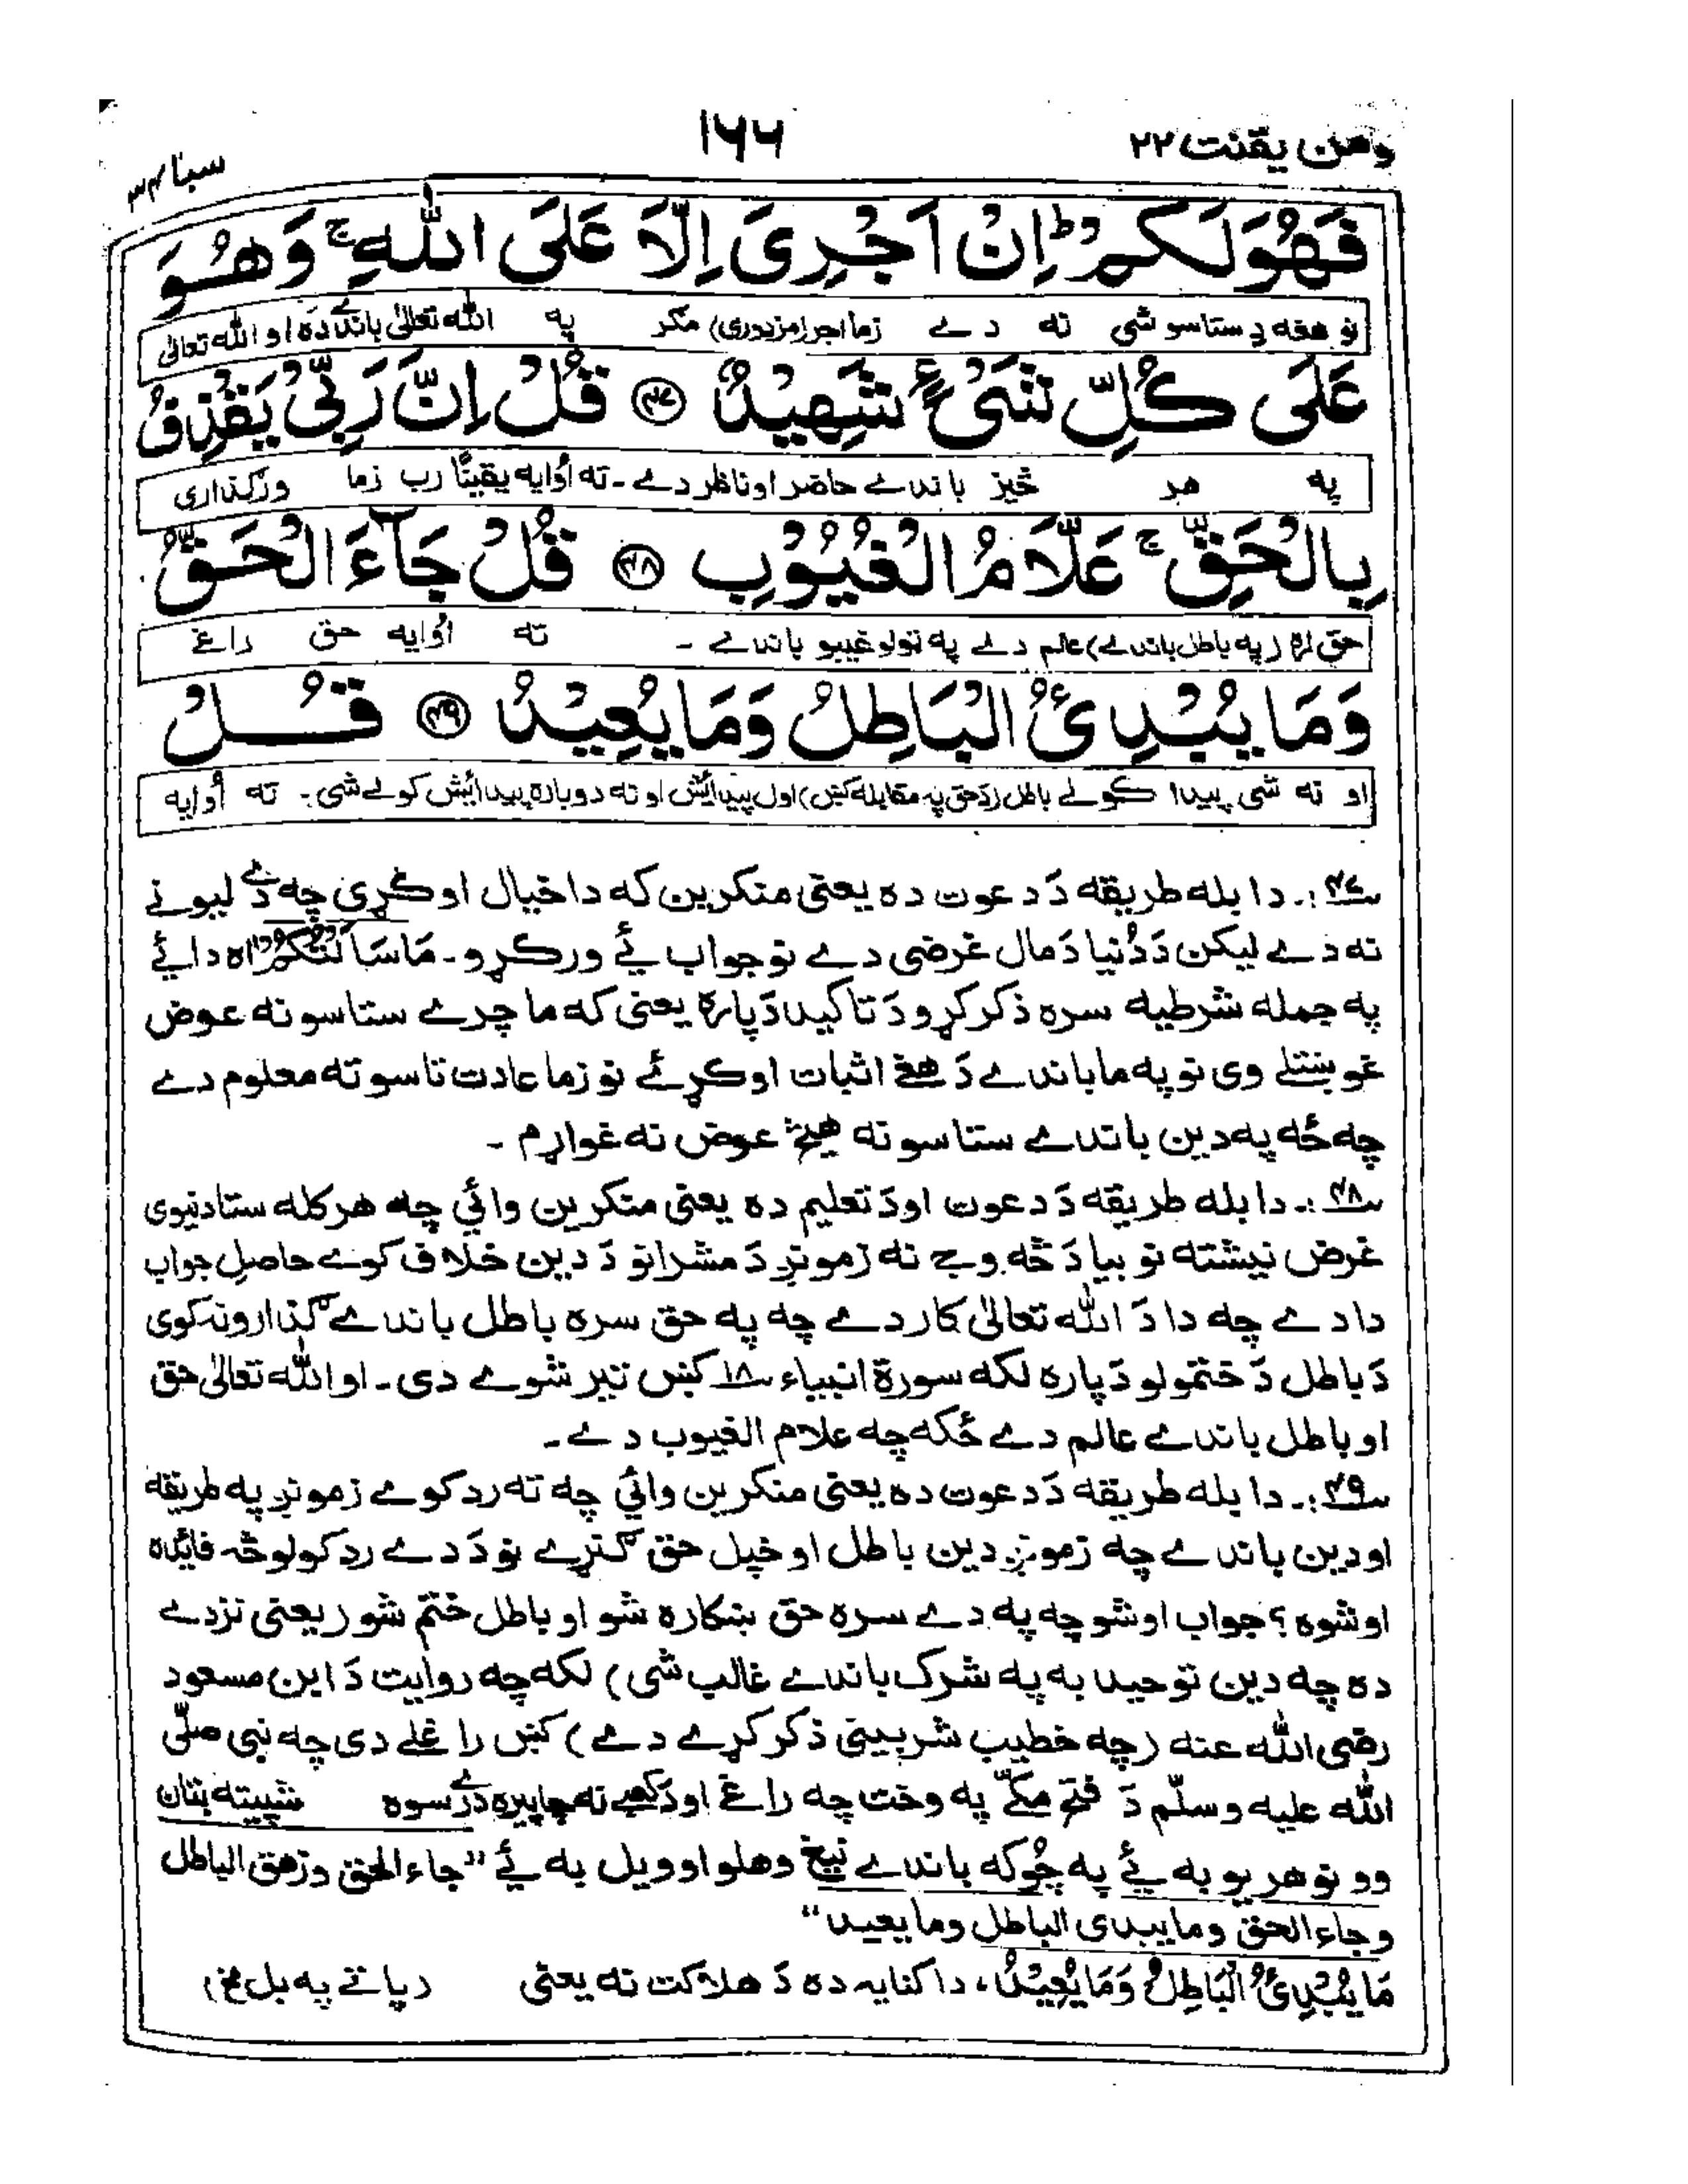 ومن یقنت ۲۲
۱۶۶
سبا ۳۴
فَهُوَ لَكُمْ ؕ اِنْ اَجْرِیَ اِلَّا عَلَی اللّٰهِ ۚ وَهُوَ
نو هغه د ستاسو شی نه دے زما اجر (مزدوری) مگر په الله تعالیٰ باندے دَه او الله تعالیٰ
عَلٰی كُلِّ شَیْءٍ شَهِیْدٌ ﴿۴۷﴾ قُلْ اِنَّ رَبِّیْ یَقْذِفُ
په هر څیز باندے حاضر او ناظر دے ۔ ته اُوایه یقینًا رب زما ورگذاری
بِالْحَقِّ ۚ عَلَّامُ الْغُیُوْبِ ﴿۴۸﴾ قُلْ جَآءَ الْحَقُّ
حق لره (په باطل باندے) عالم دے په ټولو غیبو باندے ۔ ته اُوایه حق راغے
وَمَا یُبْدِئُ الْبَاطِلُ وَمَا یُعِیْدُ ﴿۴۹﴾ قُلْ
او نه شی پیدا کولے باطل (د حق په مقابله کښ) اول پیدائش او نه دوباره پیدائش کولے شی ۔ ته اُوایه
۴۷ :۔ دا بله طریقه دَ دعوت ده یعنی منکرین که دا خیال اوکړی چه دے لیونے
نه دے لیکن دَ دُنیا دَ مال غرضی دے نو جواب ئے ورکړو ۔ مَا سَاَلْتُكُمْ اه دا ئے
په جمله شرطیه سره ذکر کړو دَ تاکید دَپاره یعنی که ما چرے ستاسو نه عوض
غوښتلے وی نو په ما باندے دَ هغے اثبات اوکړئے نو زما عادت تاسو ته معلوم دے
چه څه په دین باندے ستاسو نه هیڅ عوض نه غواړم ۔
۴۸ :۔ دا بله طریقه دَ دعوت او دَ تعلیم ده یعنی منکرین وائی چه هرکله ستا دنیوی
غرض نیشته نو بیا دَ څه وجے نه زمونږ دَ مشرانو دَ دین خلاف کوے حاصلِ جواب
دا دے چه دا دَ الله تعالیٰ کار دے چه په حق سره باطل باندے گذارونه کوی
دَ باطل دَ ختمولو دَپاره لکه سورة انبیاء ۱۸ کښ تیر شوے دی ۔ او الله تعالیٰ حق
او باطل باندے عالم دے ځکه چه علام الغیوب دے ۔
۴۹ :۔ دا بله طریقه دَ دعوت ده یعنی منکرین وائی چه ته رد کوے زمونږ په طریقه
او دین باندے چه زمونږ دین باطل او خپل حق گنړے نو دَ دے رد کولو څه فائده
اوشوه ؟ جواب اوشو چه په دے سره حق ښکاره شو او باطل ختم شو (یعنی نزدے
ده چه دین توحید به په شرک باندے غالب شی) لکه چه روایت دَ ابن مسعود
رضی الله عنه (چه خطیب شربینی ذکر کړے دے) کښ راغلے دی چه نبی صلّی
الله علیه وسلّم دَ فتح مکّے په وخت چه راغے او دَ کعبے نه چاپیره درے سوه شپیته بتان
وو نو هر یو به ئے په څوکه باندے نیغ وهلو او ویل به ئے "جاء الحق وزهق الباطل
وجاء الحق وما یبدی الباطل وما یعید"
مَا یُبْدِئُ الْبَاطِلُ وَمَا یُعِیْدُ، دا کنایه ده دَ هلاکت نه یعنی (پاتے په بل مخ)